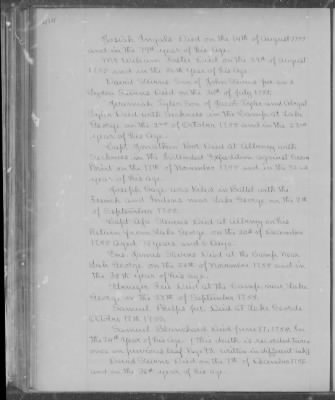 Josiah Ingals Died on the 14th of August 1755
and in the 79th year of his Age.
Mr William Foster Died on the 29th of August
1755 and in the 86th year of his Age.
David Stevens Son of John Stevens jur. and
Lydia Stevens Died on the 30th of July 1755.
Jeremiah Tyler Son of Jacob Tyler and Abigail
Tyler Died with Sickness in the Camp at Lake
George on the 2nd of October 1755 and in the 22nd
year of his Age.
Capt. Jonathan Poor Died at Albany with
Sickness in the Intended Expedition against Crown
Point on the 17th of November 1755 and in the
year of his Age.
Joseph Gage was Killed in Battel with the
French and Indians near Lake George on the 8th
of September 1755.
Capt Asa Stevens Died at Albany on his
Return from Lake George on the 20th of December
1755 Aged Years and 6 Days.
Ens. James Stevens Died at the Camp near
Lake George on the 28th of November 1755 and in
the 36th year of his age.
Ebenezer Died at the Camp near Lake
George on the 23th of September 1755.
Samuel Phelps jur. Died at Lake George
October 17th 1755.
Samuel Blanchard Died June 17, 1754 In
the 74th Year of his Age. (This death is recorded twice
once on previous leaf Page 73. written in different ink)
David Stevens Died on the 7th of December 1755
and in the 36th year of his age.